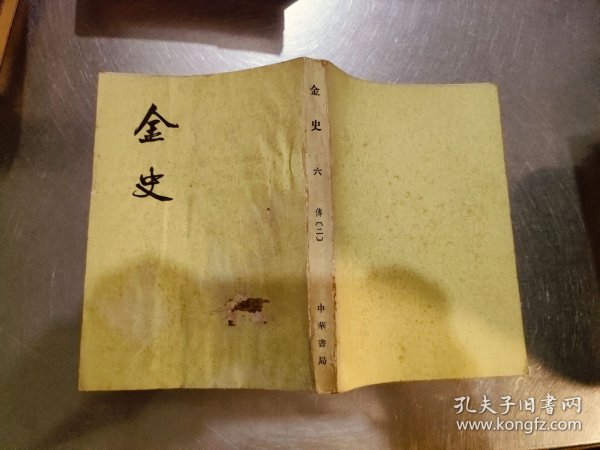 金史
金史 六 傳〔二〕 中華書局
孔夫子旧书网
www.kongfz.com